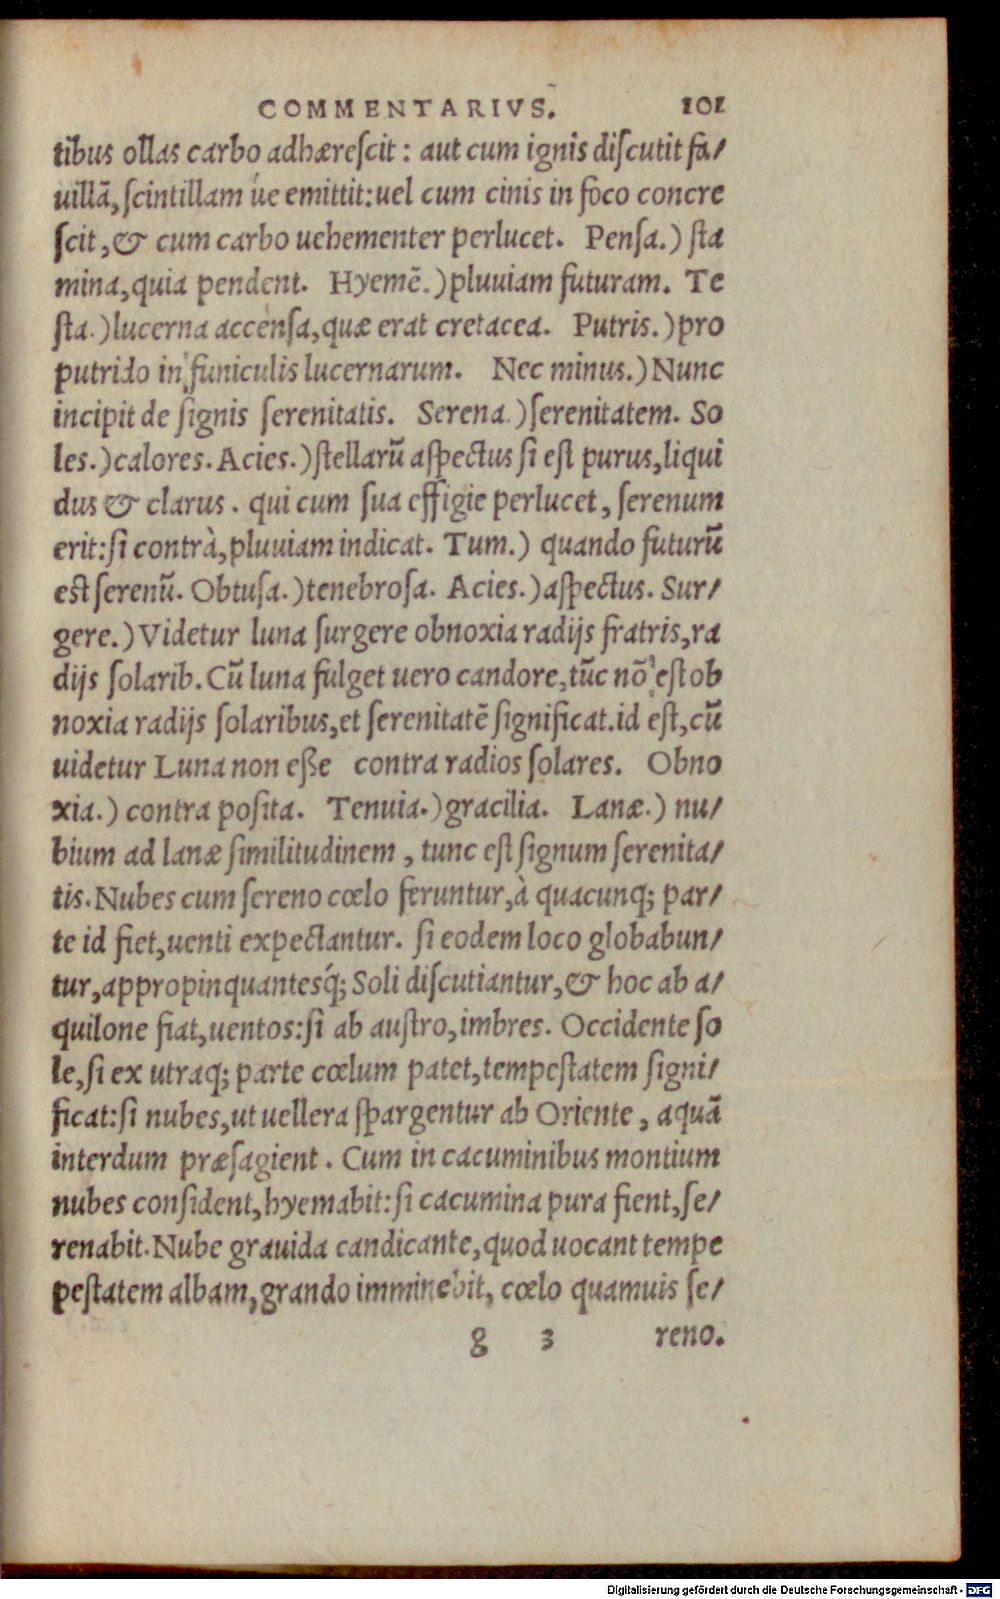 COMMENTARIVS. 101
tibus ollas carbo adhærescit : aut cum ignis discutit fa/
uillã, scintillam úe emittit:uel cum cinis in foco concre
scit, & cum carbo uehementer perlucet. Pensa.) sta
mina, quia pendent. Hyemẽ.) pluuiam futuram. Te
sta.) lucerna accensa, quæ erat cretacea. Putris.) pro
putrido in funiculis lucernarum. Nec minus.) Nunc
incipit de signis serenitatis. Serena.) serenitatem. So
les.) calores. Acies.) stellarũ aspectus si est purus, liqui
dus & clarus. qui cum sua effigie perlucet, serenum
erit: si contrà, pluuiam indicat. Tum.) quando futurũ
est serenũ. Obtusa.) tenebrosa. Acies.) aspectus. Sur/
gere.) Videtur luna surgere obnoxia radijs fratris, ra
dijs solarib. Cũ luna fulget uero candore, tũc nõ est ob
noxia radijs solaribus, et serenitatẽ significat. id est, cũ
uidetur Luna non eße contra radios solares. Obno
xia.) contra posita. Tenuia.) gracilia. Lanæ.) nu/
bium ad lanæ similitudinem, tunc est signum serenita/
tis. Nubes cum sereno cœlo feruntur, à quacunq; par/
te id fiet, uenti expectantur. si eodem loco globabun/
tur, appropinquantesq́; Soli discutiantur, & hoc ab a/
quilone fiat, uentos: si ab austro, imbres. Occidente so
le, si ex utraq; parte cœlum patet, tempestatem signi/
ficat: si nubes, ut uellera spargentur ab Oriente, aquã
interdum præsagient. Cum in cacuminibus montium
nubes consident, hyemabit: si cacumina pura fient, se/
renabit. Nube grauida candicante, quod uocant tempe
pestatem albam, grando imminebit, cœlo quamuis se/
g 3 reno.
Digitalisierung gefördert durch die Deutsche Forschungsgemeinschaft - DFG